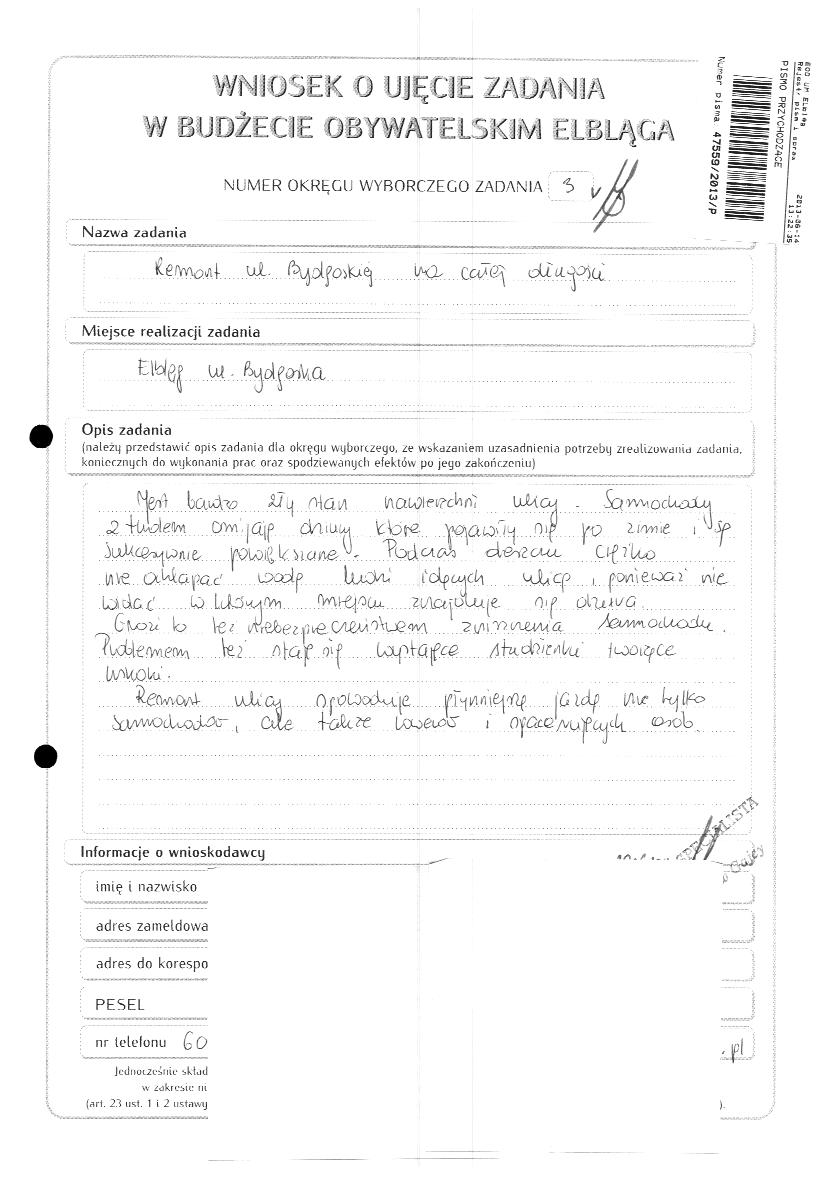 WNIOSEK O UJĘCIE ZADANIA
W BUDŻECIE OBYWATELSKIM ELBLĄGA
NUMER OKRĘGU WYBORCZEGO ZADANIA 3
EOD UM Elbląg
Rejestr pism i spraw
PISMO PRZYCHODZĄCE
2013-06-14
13:22:35
Numer pisma 47559/2013/P
Nazwa zadania
Remont ul. Bydgoskiej na całej długości
Miejsce realizacji zadania
Elbląg ul. Bydgoska
Opis zadania
(należy przedstawić opis zadania dla okręgu wyborczego, ze wskazaniem uzasadnienia potrzeby zrealizowania zadania,
koniecznych do wykonania prac oraz spodziewanych efektów po jego zakończeniu)
Jest bardzo zły stan nawierzchni ulicy. Samochody
z trudem omijają dziury które pojawiły się po zimie i są
sukcesywnie powiększane. Podczas deszczu ciężko
nie ochlapać wodą ludzi idących ulicą, ponieważ nie
widać w którym miejscu znajduje się dziura.
Grozi to też niebezpieczeństwem zniszczenia samochodu.
Problemem też stają się wystające studzienki tworzące
Remont ulicy spowoduje płynniejszą jazdę nie tylko
samochodów, ale także rowerów i spacerujących osób.
Informacje o wnioskodawcy
SPECJALISTA
imię i nazwisko
adres zameldowa
adres do korespo
PESEL
nr telefonu 60
.pl
Jednocześnie skład
w zakresie ni
(art. 23 ust. 1 i 2 ustawy
).